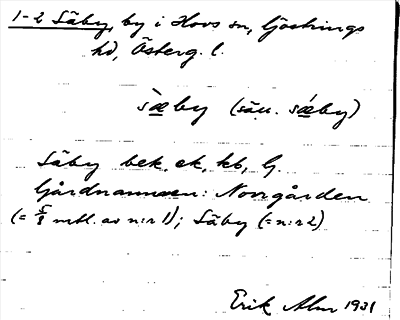 1-2 Säby, by i Hovs sn, Göstrings
hd, Österg. l.
sæ̀by (säll. sǽby)
Säby bek. ek, kb, G.
Gårdnamnen: Norrgården
(= 5/8 mtl. av n:r 1); Säby (= n:r 2)
Erik Alm 1931